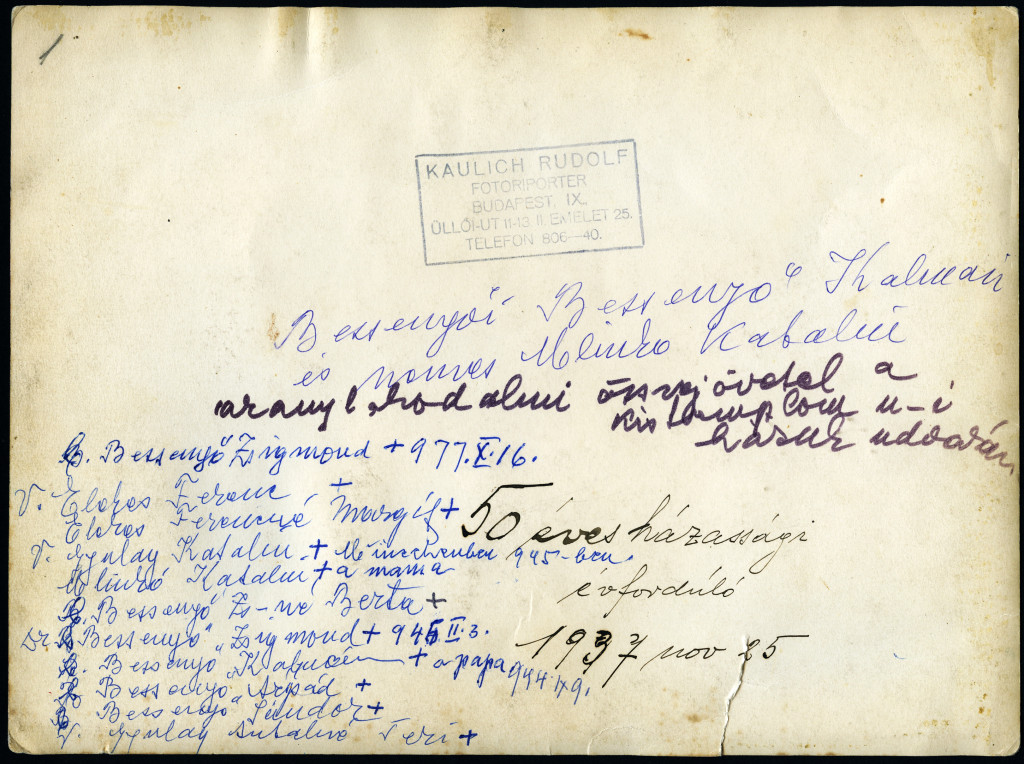 1
KAULICH RUDOLF
FOTORIPORTER
BUDAPEST, IX.,
ÜLLŐI-UT 11-13 II. EMELET 25.
TELEFON 806—40.
Bessenyői Bessenyő Kálmán
és nemes Mlinkó Katalin
aranylakodalmi összejövetel a
kistemplom u-i
házuk udvarán
B. Bessenyő Zsigmond + 977.X.16.
V. Elekes Ferenc +
Elekes Ferencné Margit +
V. Gyulay Katalin + Münchenben 945-ben.
Mlinkó Katalin + a mama
B. Bessenyő Zs-né Berta +
Dr. B. Bessenyő Zsigmond + 945 II.3.
B. Bessenyő Kálmán + a papa 944.
B. Bessenyő Árpád +
B. Bessenyő Sándor +
V. Gyulay Antalné Teri +
50 éves házassági
évforduló
1937 nov 25